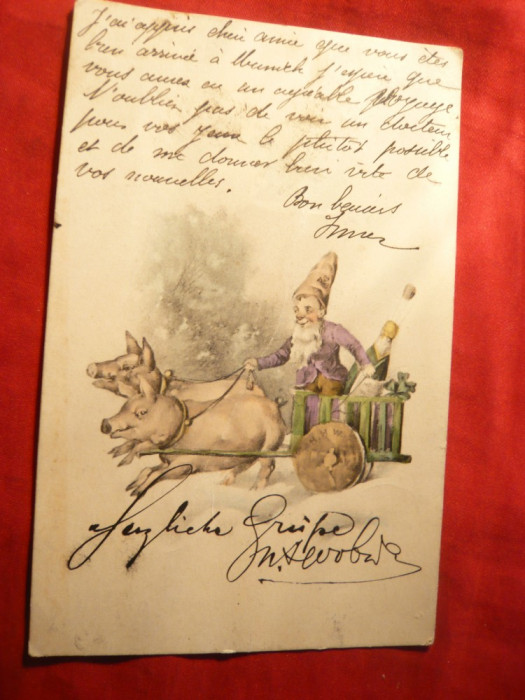 J'ai appris chère amie que vous êtes
bien arrivée à Munich j'espère que
vous aurez eu un agréable voyage.
N'oubliez pas de voir un docteur
pour vos yeux le plutôt possible
et de me donner bien vite de
vos nouvelles.
Bon baisers
Herzliche Grüße